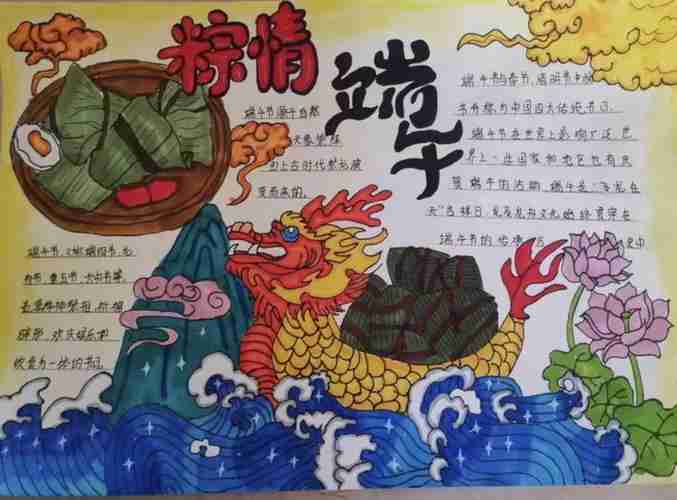 粽情
端午
端午节源于自然
天象崇拜
由上古时代祭龙演
变而来的。
端午节与春节、清明节中秋
节并称为中国四大传统节日。
端午节在世界上影响广泛,世
界上一些国家和地区也有庆
贺端午的活动,端午是“飞龙在
天”吉祥日,龙及龙舟文化始终贯穿在
端午节的传承历史中
端午节,又称端阳节、龙
舟节、重五节、天中节等,
是集拜神祭祖、祈福
辟邪、欢庆娱乐和
饮食为一体的节日。